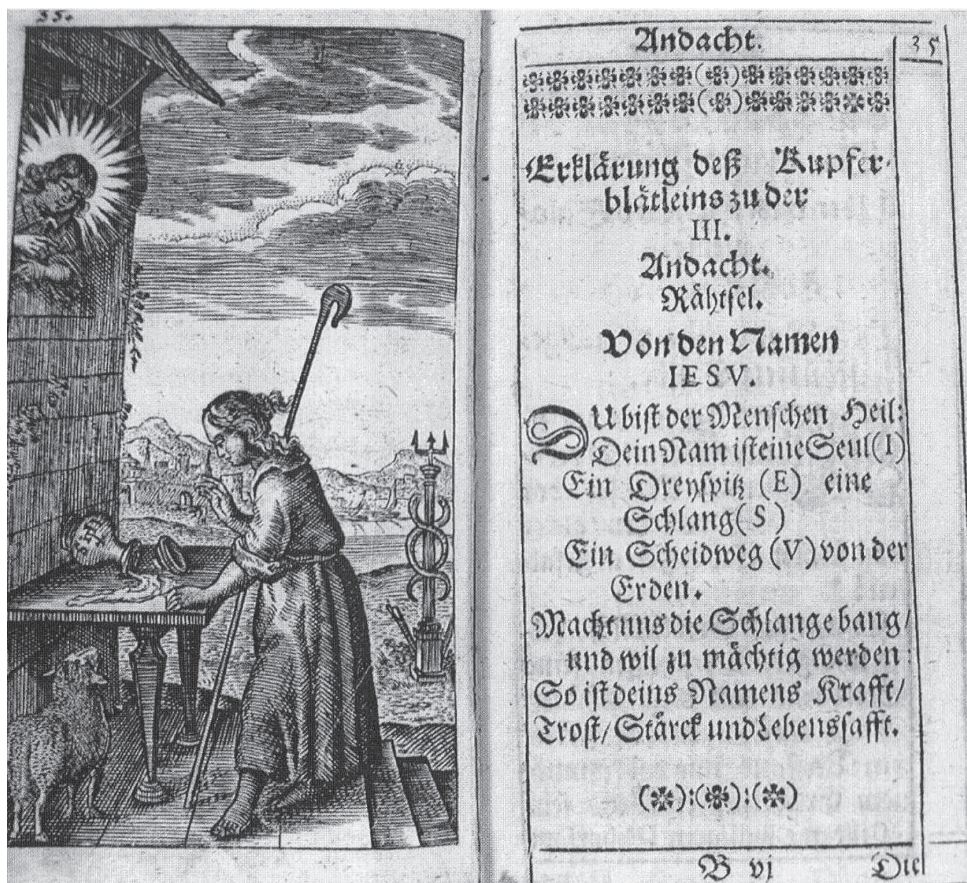 35.
Andacht.
35
Erklärung deß Kupfer-
blätleins zu der
III.
Andacht.
Rähtsel.
Von den Namen
IESV.
DU bist der Menschen Heil:
Dein Nam ist eine Seul (I)
Ein Dreyspitz (E) eine
Schlang (S)
Ein Scheidweg (V) von der
Erden.
Macht uns die Schlange bang/
und wil zu mächtig werden:
So ist deins Namens Krafft/
Trost/ Stärck und Lebenssafft.
B vj
Die